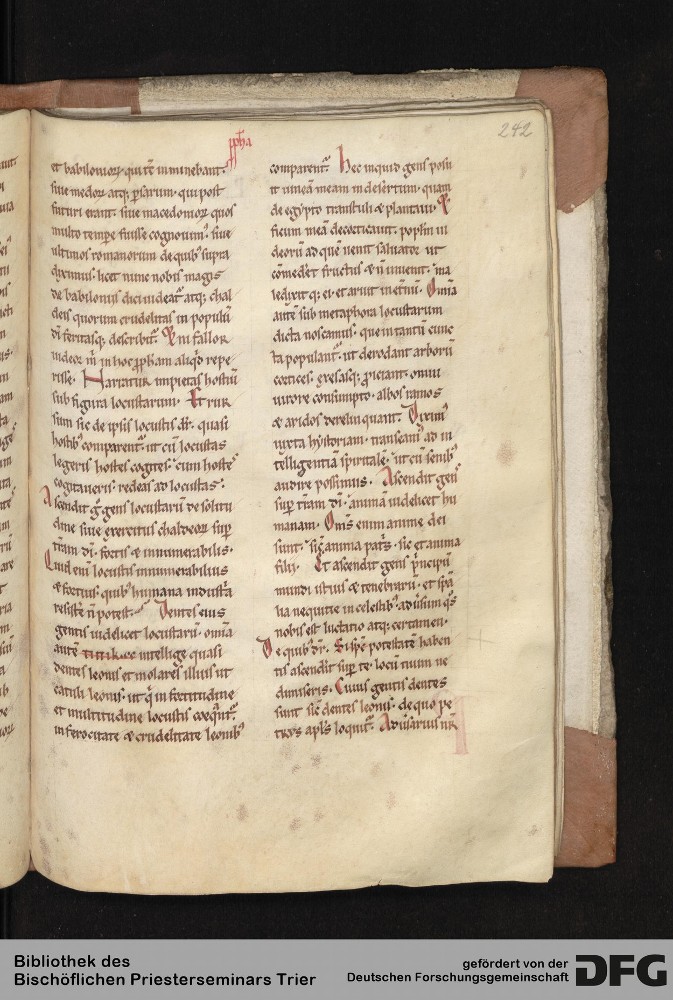 ppha
242
et babilonioꝝ qui tē imminebant.
siue medoꝝ atq; ꝑsarum. qui post
futuri erant. siue macedonioꝝ quos
multo tempe fuisse cognouimꝰ. siue
ultimos romanorum de quibꝰ supra
diximus. licet nunc nobis magis
de babilonijs dici uideat atq; chal
deis quorum crudelitas in populū
dī feritasq; describit. Et ni fallor
uideor m̄ in hoc ꝓpham aliqd repe
risse. Narratur impietas hostiū
sub figura locustarum. Et rur
sum sic de ipsis locustis dr̄. quasi
hostibꝰ comparent. ut cū locustas
legeris hostes cogites. cum hostes
cogitaueris. redeas ad locustas.
Ascendit g gens locustarū de solitu
dine siue exercitus chaldeoꝝ sup
tram dī. fortis & innumerabilis.
Quid enī locustis innumerabilius
& fortius. quibꝰ humana industria
resistere n̄ potest. Dentes eius
gentis uidelicet locustarū. omīa
autē intellige quasi
dentes leonis et molares illius ut
catuli leonis. ut q in fortitudine
et multitudine locustis coequent.
in ferocitate & crudelitate leonibꝰ
comparent. Hec inquid gens posu
it uineā meam in desertum. quam
de egypto transtuli & plantaui. Et
ficum meā decorticauit. poplm iu
deorū ad quē uenit saluator ut
comedet fructus & n̄ inuenit. ma
ledixit q; ei. et aruit in et̄nū. Omīa
autē sub metaphora locustarum
dicta noscamus. que in tantū cunc
ta populant. ut derodant arborū
cortices. eresasq; ꝓiciant. omiū
uirore consumpto. albos ramos
& aridos derelinquant. Diximꝰ
iuxta hystoriam. transeamꝰ ad in
telligentiam spiritalē. ut cū senibꝰ
audire possimus. Ascendit gens
sup tram dī. animā uidelicet hu
manam. Oms enim anime dei
sunt. sic anima patris. sic et anima
filij. Et ascendit gens principū
mundi istius & tenebrarū. et spa
lia nequitie in celestibꝰ. aduersum qs
nobis est luctatio atq; certamen.
De quibꝰ dr̄. Si spc̄ potestatē haben
tis ascendit sup te. locū tuum ne
dimiseris. Cuius gentis dentes
sunt sic dentes leonis. de quo pe
trus apls loquit. Aduersarius nr̄
Bibliothek des
Bischöflichen Priesterseminars Trier
gefördert von der
Deutschen Forschungsgemeinschaft
DFG